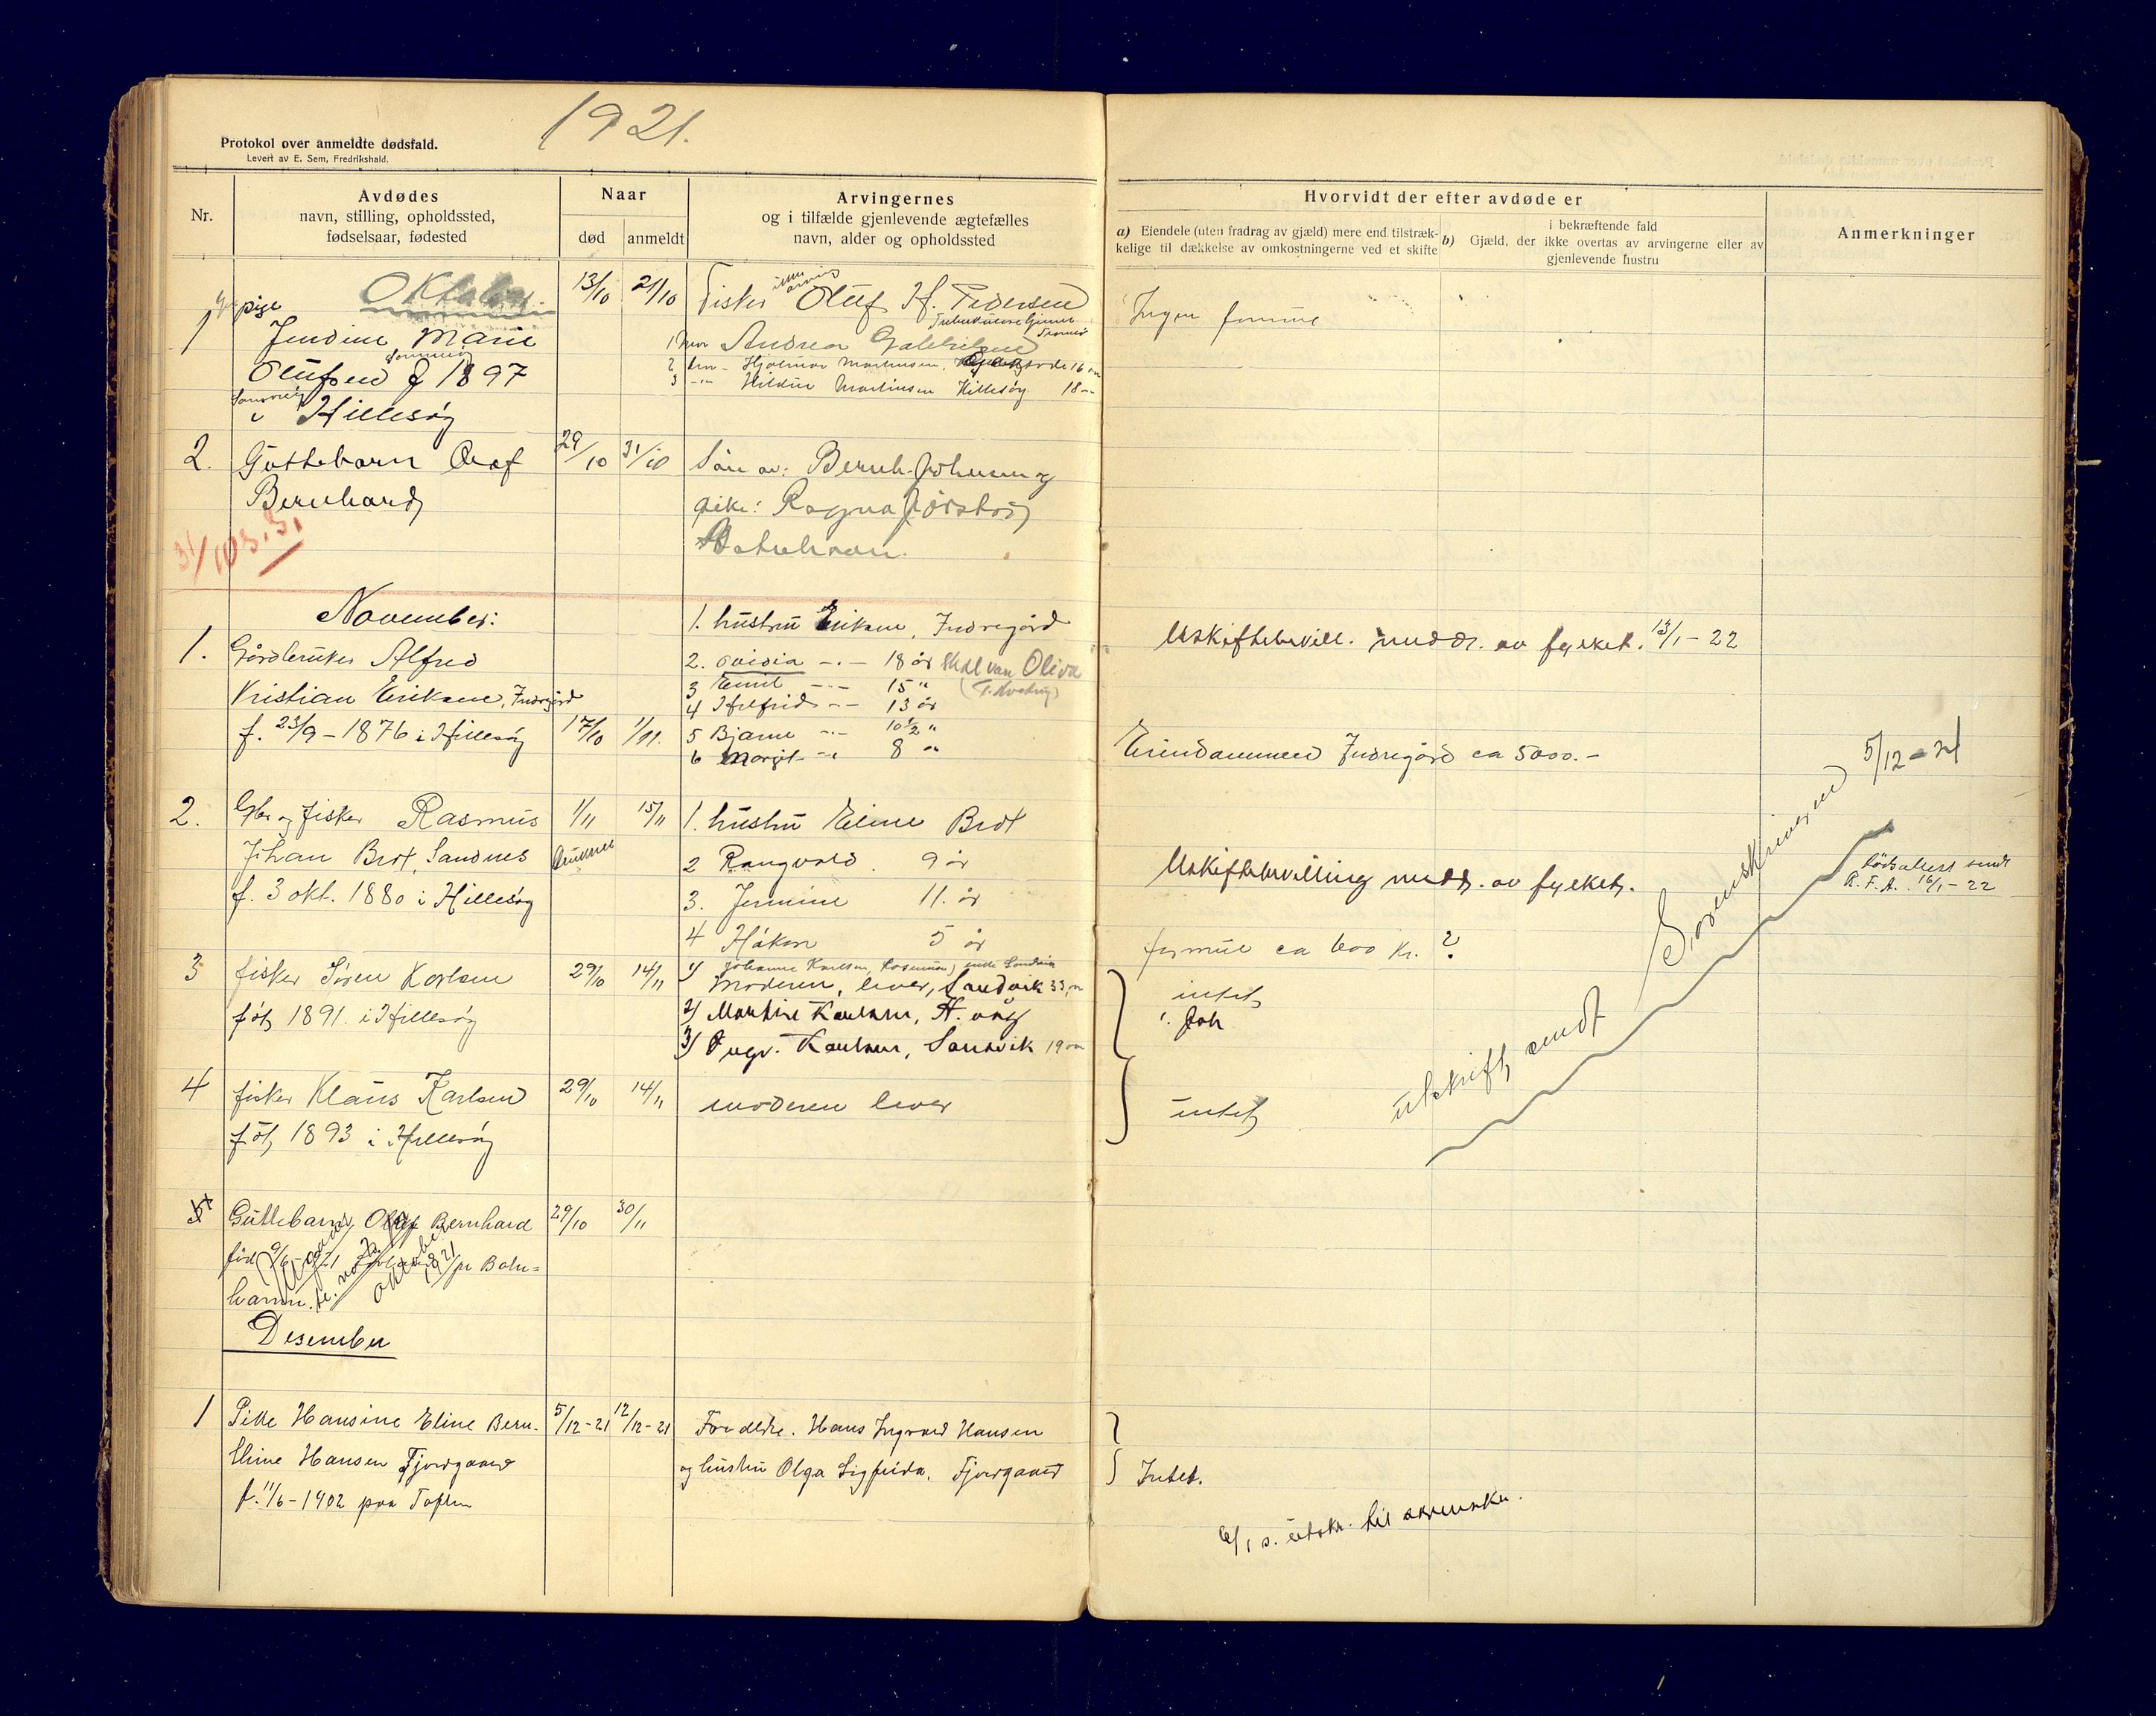 1921.
Protokol over anmeldte dødsfald.
Levert av E. Sem, Fredrikshald.
Nr.
Avdødes
navn, stilling, opholdssted,
fødselsaar, fødested
Naar
død
anmeldt
Arvingernes
og i tilfælde gjenlevende ægtefælles
navn, alder og opholdssted
Hvorvidt der efter avdøde er
a) Eiendele (uten fradrag av gjæld) mere end tilstræk-
kelige til dækkelse av omkostningerne ved et skifte
i bekræftende fald
b) Gjæld, der ikke overtas av arvingerne eller av
gjenlevende hustru
Anmerkninger
Oktober
1 pige 13/10 21/10 Fisker Oluf H. Pedersen
Jendine Marie
Olufsen f 1897
i Hillesøy
1 mor Andrea
2 bror Hjalmar Martinsen, 16 år
3 -"- Hildur Martinsen Hillesøy 18 -"-
Ingen formue
2. Guttebarn Olaf 29/10 31/10 Sön av: Bernh. Johnsen og
Bernhard
pike: Ragna
31/10
November:
1. Gårdbruker Alfred
Kristian Eriksen, Indregård
f. 23/9 - 1876 i Hillesøy 17/10 1/11.
1. hustru Eriksen, Indregård
2. Ovidia -"- 18 år Skal være Oliva
3 Emil -"- 15 "
4 Hilfrid -"- 13 år
5 Bjarne -"- 10½ "
6 Margit -"- 8 "
Uskiftebevill. medd. av fylket. 13/1 - 22
Eiendommen Indregård ca 5000.-
2. Gbr og fisker Rasmus 1/11 15/11
Johan Brot, Sandnes
f. 3 okt. 1880 i Hillesøy
1. hustru Eline Brot
2 Rangvald. 9 år
3. Jermine 11. år
4 Håkon 5 år
Uskiftebevilling medd. av fylket.
formue ca 600 kr. ?
Dødsattest sendt
R.F.A. 16/1 - 22
3 fisker Sören Karlsen 29/10 14/11
föt 1891. i Hillesøy
1) Johanne Karlsen,
moderen, lever, Sandvik 33 år
2) Martin Karlsen,
3) Ingv. Karlsen, Sandvik 19 år
intet
4 fisker Klaus Karlsen 29/10 14/11 moderen lever
föt 1893 i Hillesøy
intet
utskrift sendt Sorenskriveren 5/12 - 21
5 Guttebarn Olaf Bernhard 29/10 30/11
född 9/6 - 1921
havn.
Desember
1 Pike Hansine Eline Bern- 5/12-21 12/12-21
tine Hansen Fjordgaard
f. 11/6 - 1902 paa Toften
Foreldre. Hans Ingvard Hansen
og hustru Olga Sigfrida, Fjordgaard
Intet.
6/1 s. utskr. til sorenskr.